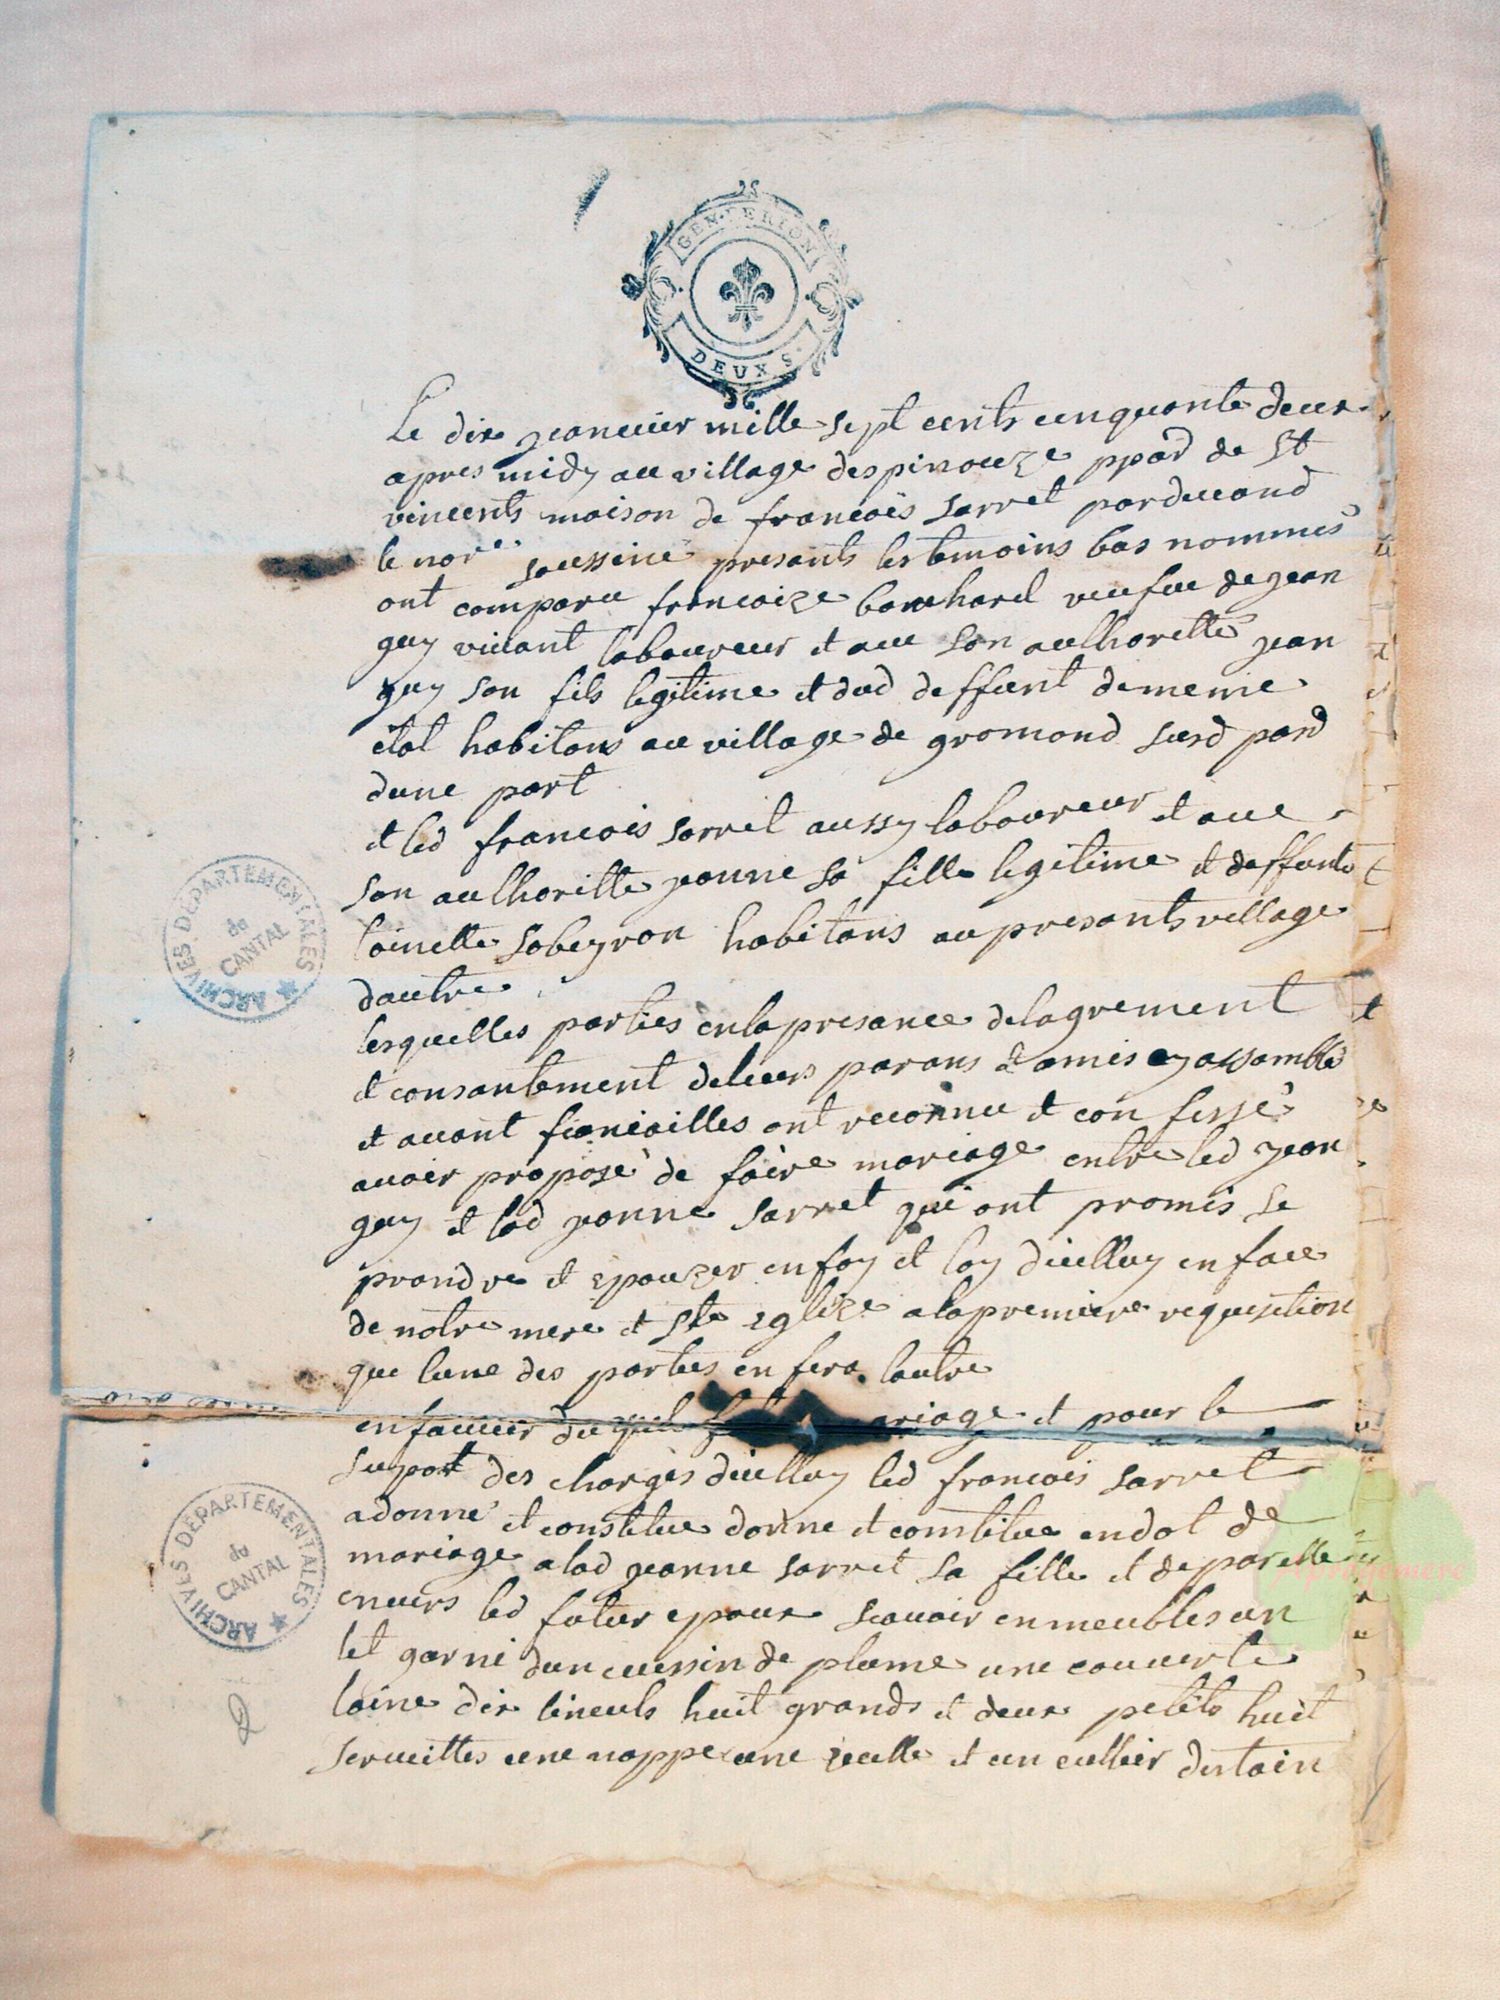 GEN. DE RION
DEUX S.
Le dix janvier mille sept cents cinquante deux
apres midy au village despinouze ppad de St
vincents maison de francois sarret pardevand
le nore soussiné presants les temoins bas nommés
ont comparu francoize bouchard veufue de jean
guy vivant laboureur et avec son authorette jean
guy son fils legitime et dud deffunt de meme
état habitans au village de gromond susd pard
dune part
et led francois sarret aussy laboureur et avec
son authoritte jeanne sa fille legitime et deffunte
toinette sobeyron habitans au presants village
dautre
lesquelles parties en la presance de lagrement
et consantement de leurs parans et amis cy assamblé
et avant fiancailles ont reconnu et confessé
avoir proposé de faire mariage entre led jean
guy et lad jeanne sarret qui ont promis se
prandre et epouzer en foy et loy dicelluy en face
de notre mere et Ste eglize a la premiere requisition
que lune des parties en fera lautre
en faveur duquel mariage et pour le
suport des charges dicelluy led francois sarret
a donné et constitue donne et constitue en dot de
mariage a lad jeanne sarret sa fille et de parelle
envers led futur epoux scavoir en meubles un
let garni dun cuessin de plume une couverte
laine dix linceuls huit grands et deux petits huit
serviettes une nappe une et un cullier destain
ARCHIVES DÉPARTEMENTALES
du
CANTAL
ARCHIVES DÉPARTEMENTALES
du
CANTAL